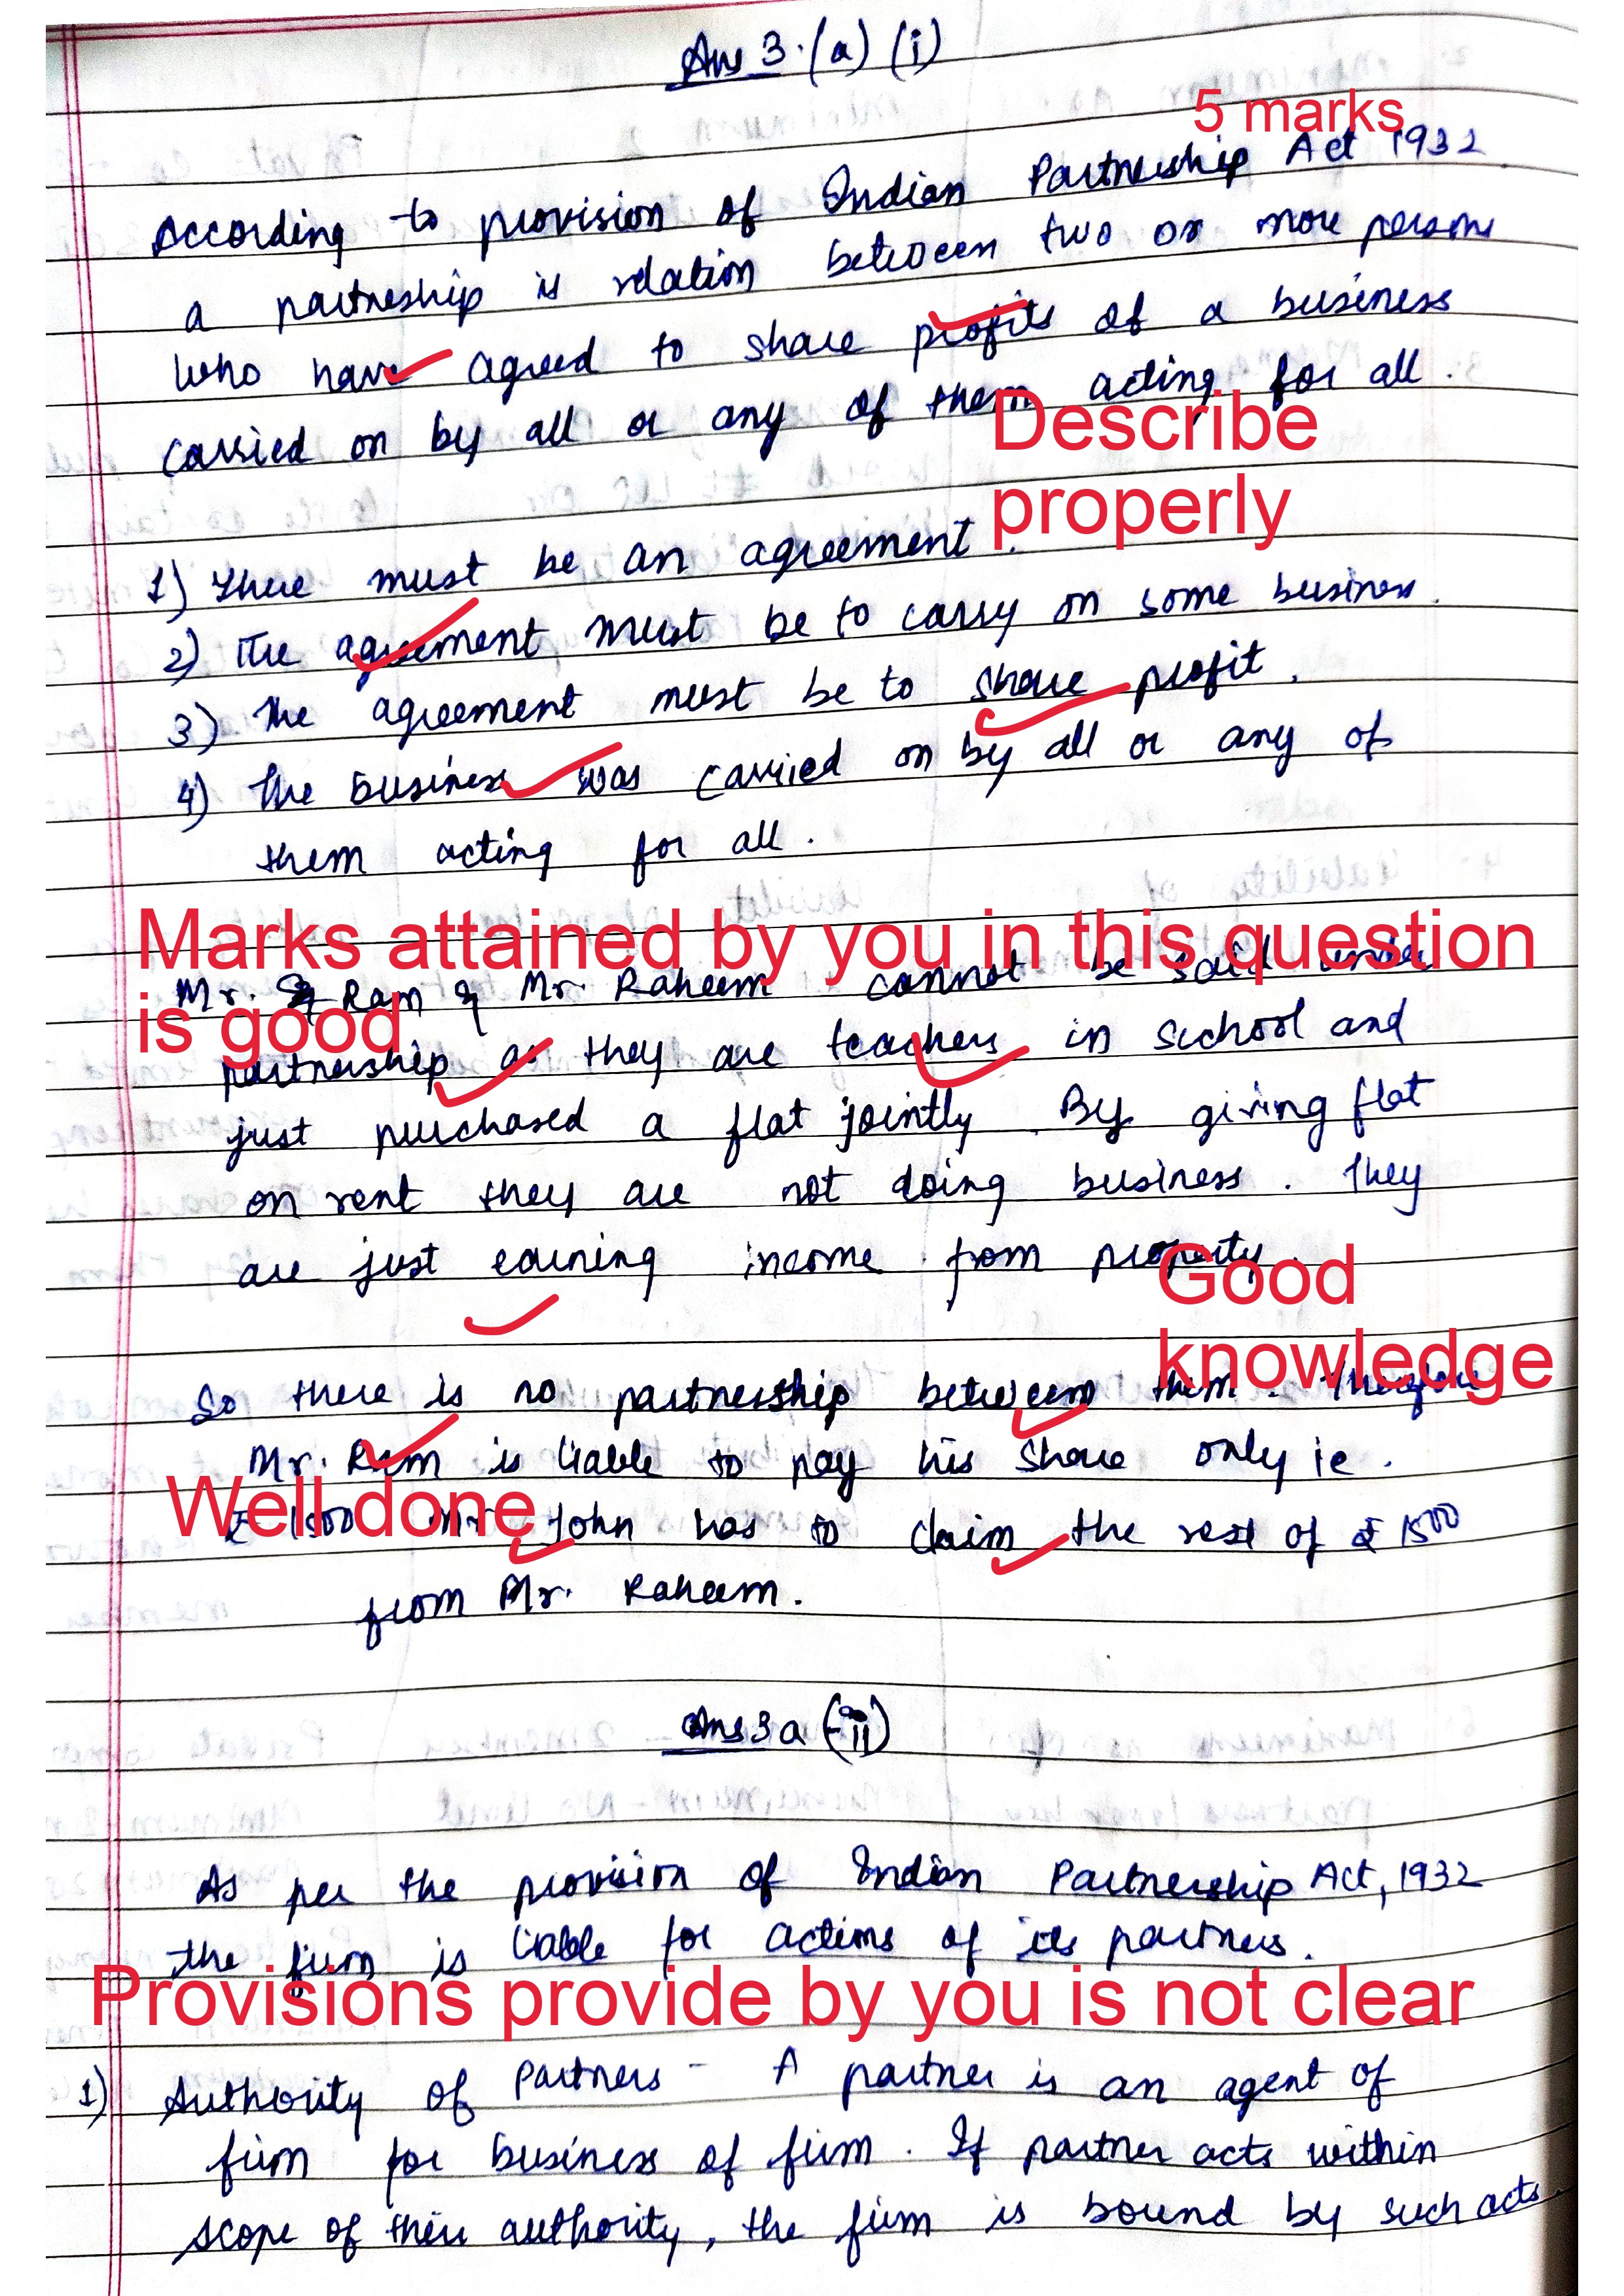 Ans 3.(a) (i)
5 marks
According to provision of Indian Partneship Act 1932
a partneship is relation between two or more persons
who have agreed to share profits of a business
carried on by all or any of them acting for all.
Describe
properly
1) There must be an agreement.
2) The agreement must be to carry on some business.
3) The agreement must be to share profit.
4) The business was carried on by all or any of
them acting for all.
Marks attained by you in this question
is good
Mr. Ram & Mr. Raheem cannot be said under
partnership as they are teachers in school and
just purchased a flat jointly. By giving flat
on rent they are not doing business. They
are just earning income from property.
Good
knowledge
So there is no partnership between them. Therefore
Mr. Ram is liable to pay his share only ie.
Well done
₹ 1500 Mr. John has to claim the rest of ₹ 1500
from Mr. Raheem.
Ans 3a (ii)
As per the provision of Indian Partnership Act, 1932
the firm is liable for actions of its partners.
Provisions provide by you is not clear
1) Authority of Partners - A partner is an agent of
firm for business of firm. If partner acts within
scope of their authority, the firm is bound by such acts.